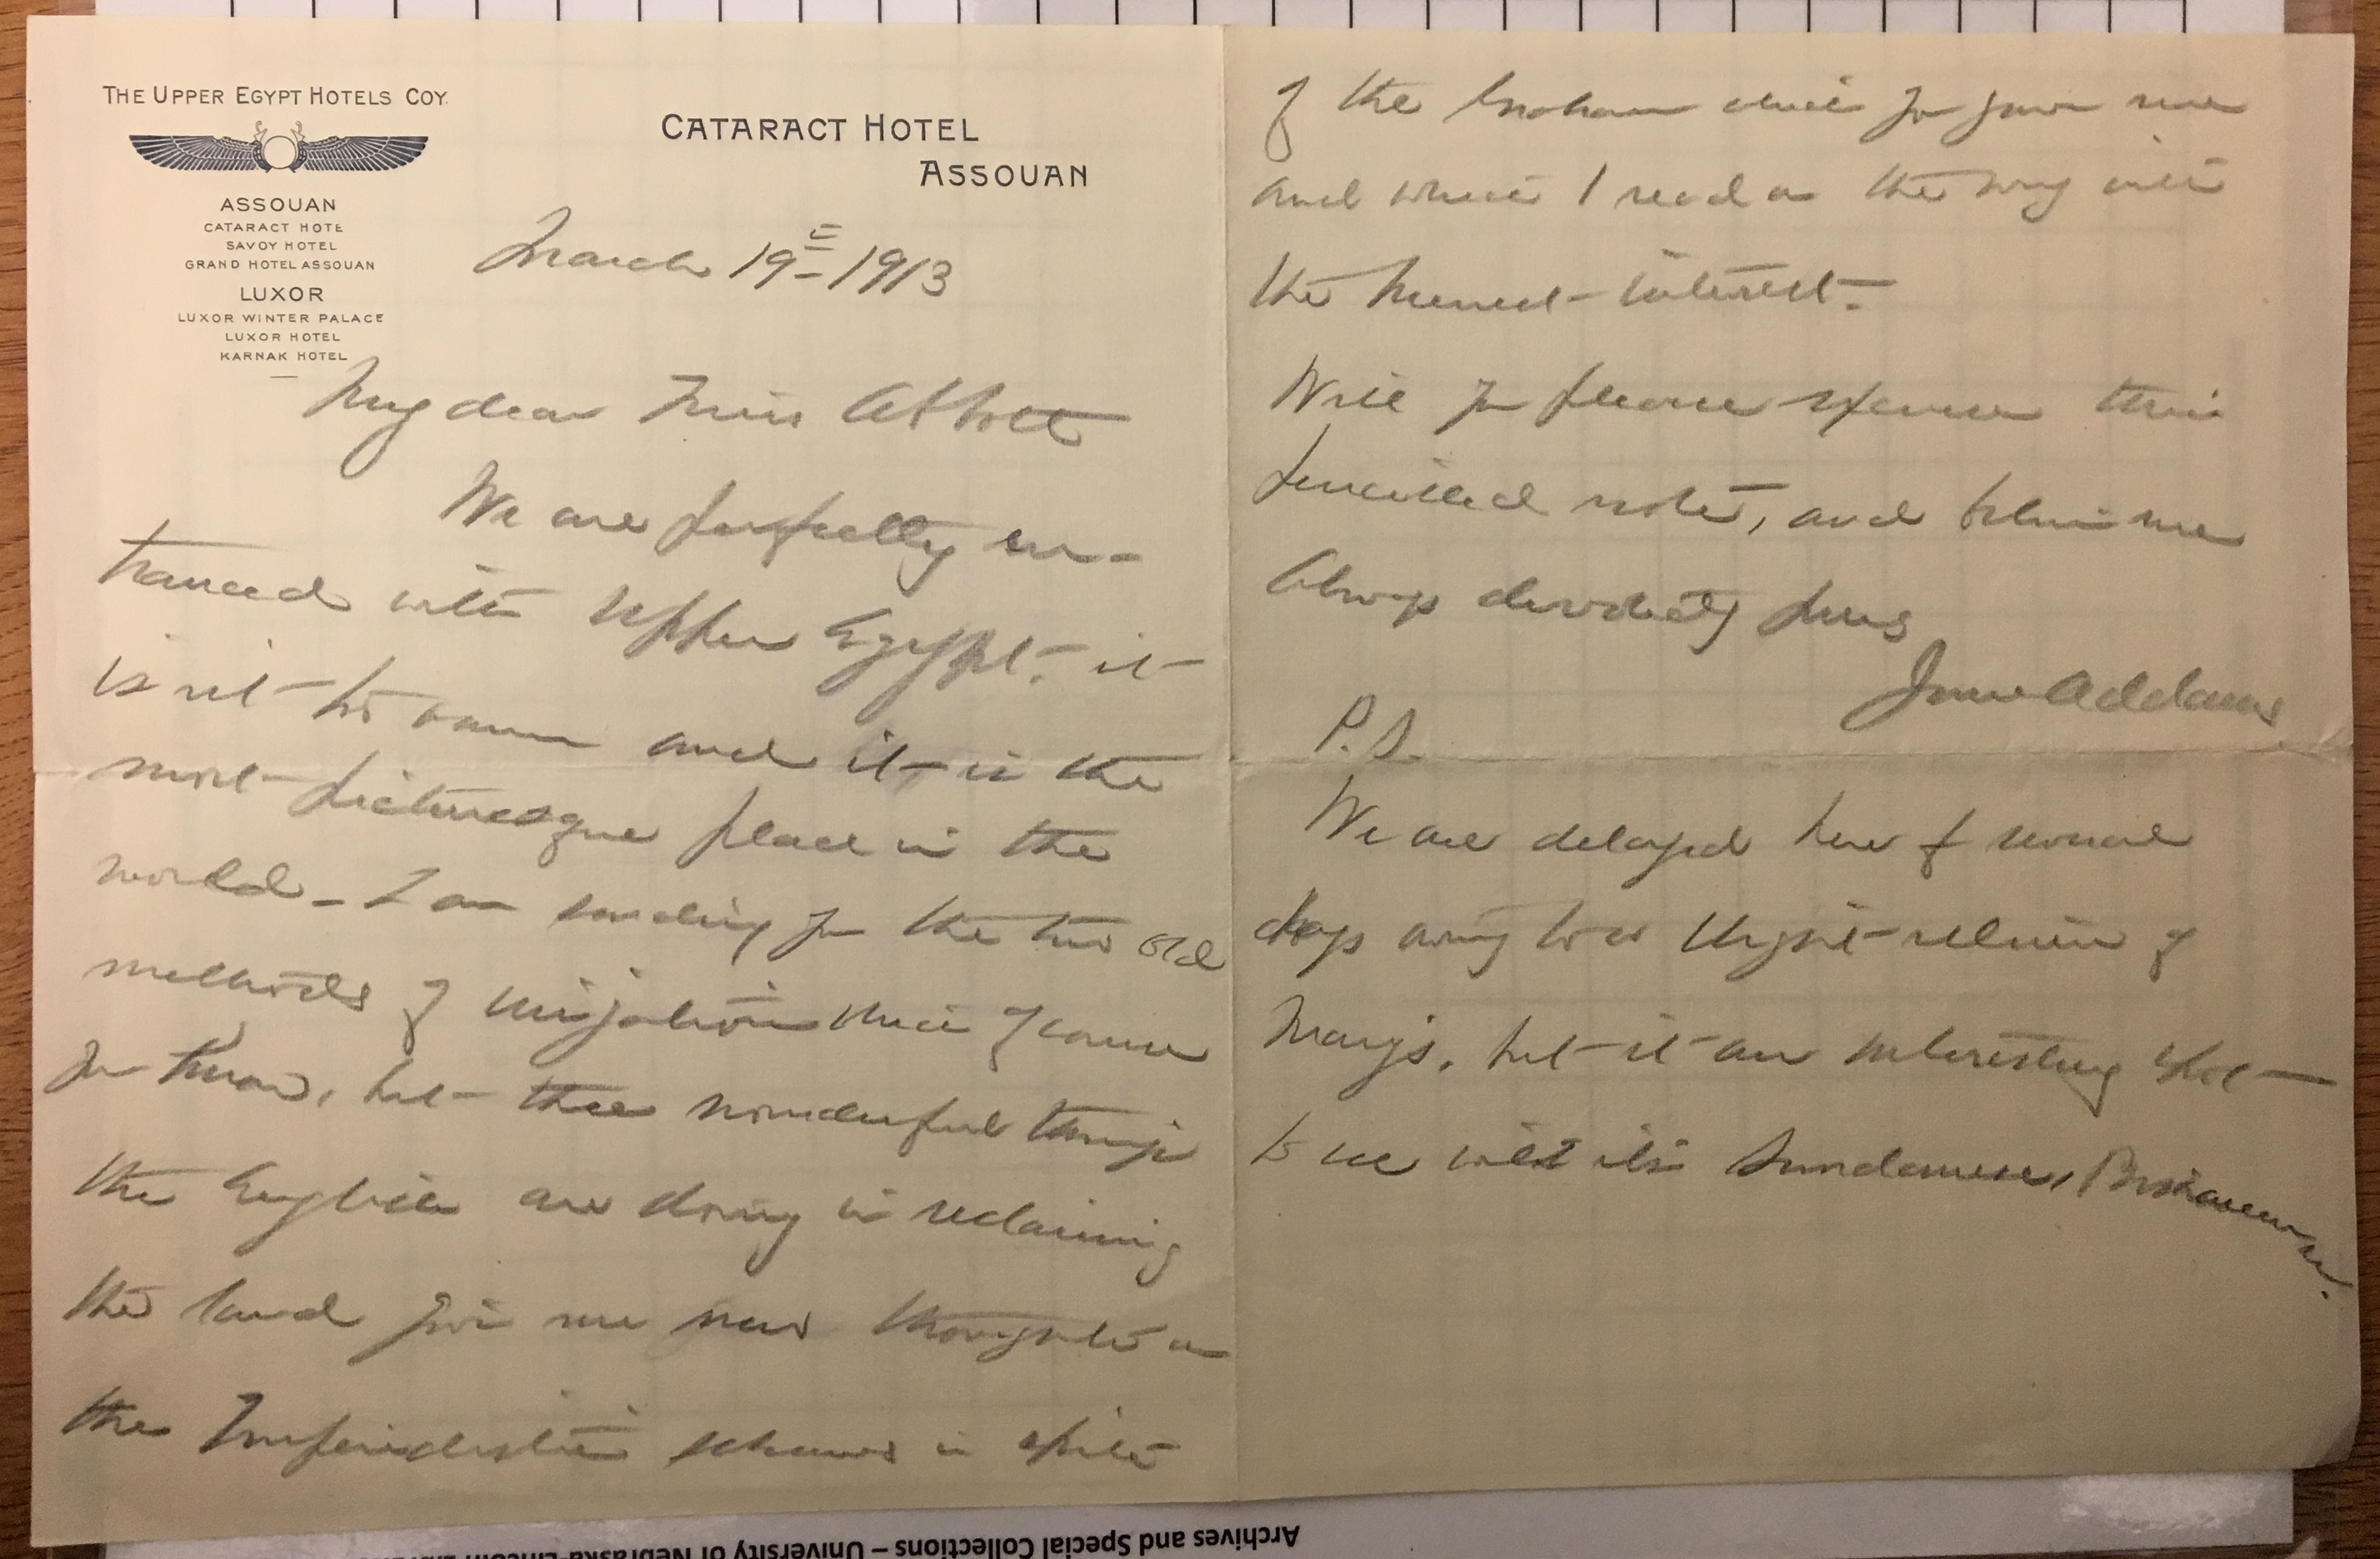 THE UPPER EGYPT HOTELS COY.
ASSOUAN
CATARACT HOTE
SAVOY HOTEL
GRAND HOTEL ASSOUAN
LUXOR
LUXOR WINTER PALACE
LUXOR HOTEL
KARNAK HOTEL
CATARACT HOTEL
ASSOUAN
March 19" 1913
My dear Miss Abbott
We are perfectly en-
tranced with Upper Egypt. it
is not too warm and it is the
most picturesque place in the
world – I am sending you the two old
methods of irrigation which of course
you know, but the wonderful things
the English are doing in reclaiming
the land give me new thoughts on
the Imperialistic schemes in spite
of the which you gave me
and which I read on the way with
the keenest interest.
Will you please excuse this
pencilled note, and believe me
Always devotedly yours
Jane Addams
P.S.
We are delayed here for several
days owing to a slight return of
Mary's, but it an interesting spot
to see with its Sundanese,
Archives and Special Collections – University of Nebraska-Lincoln